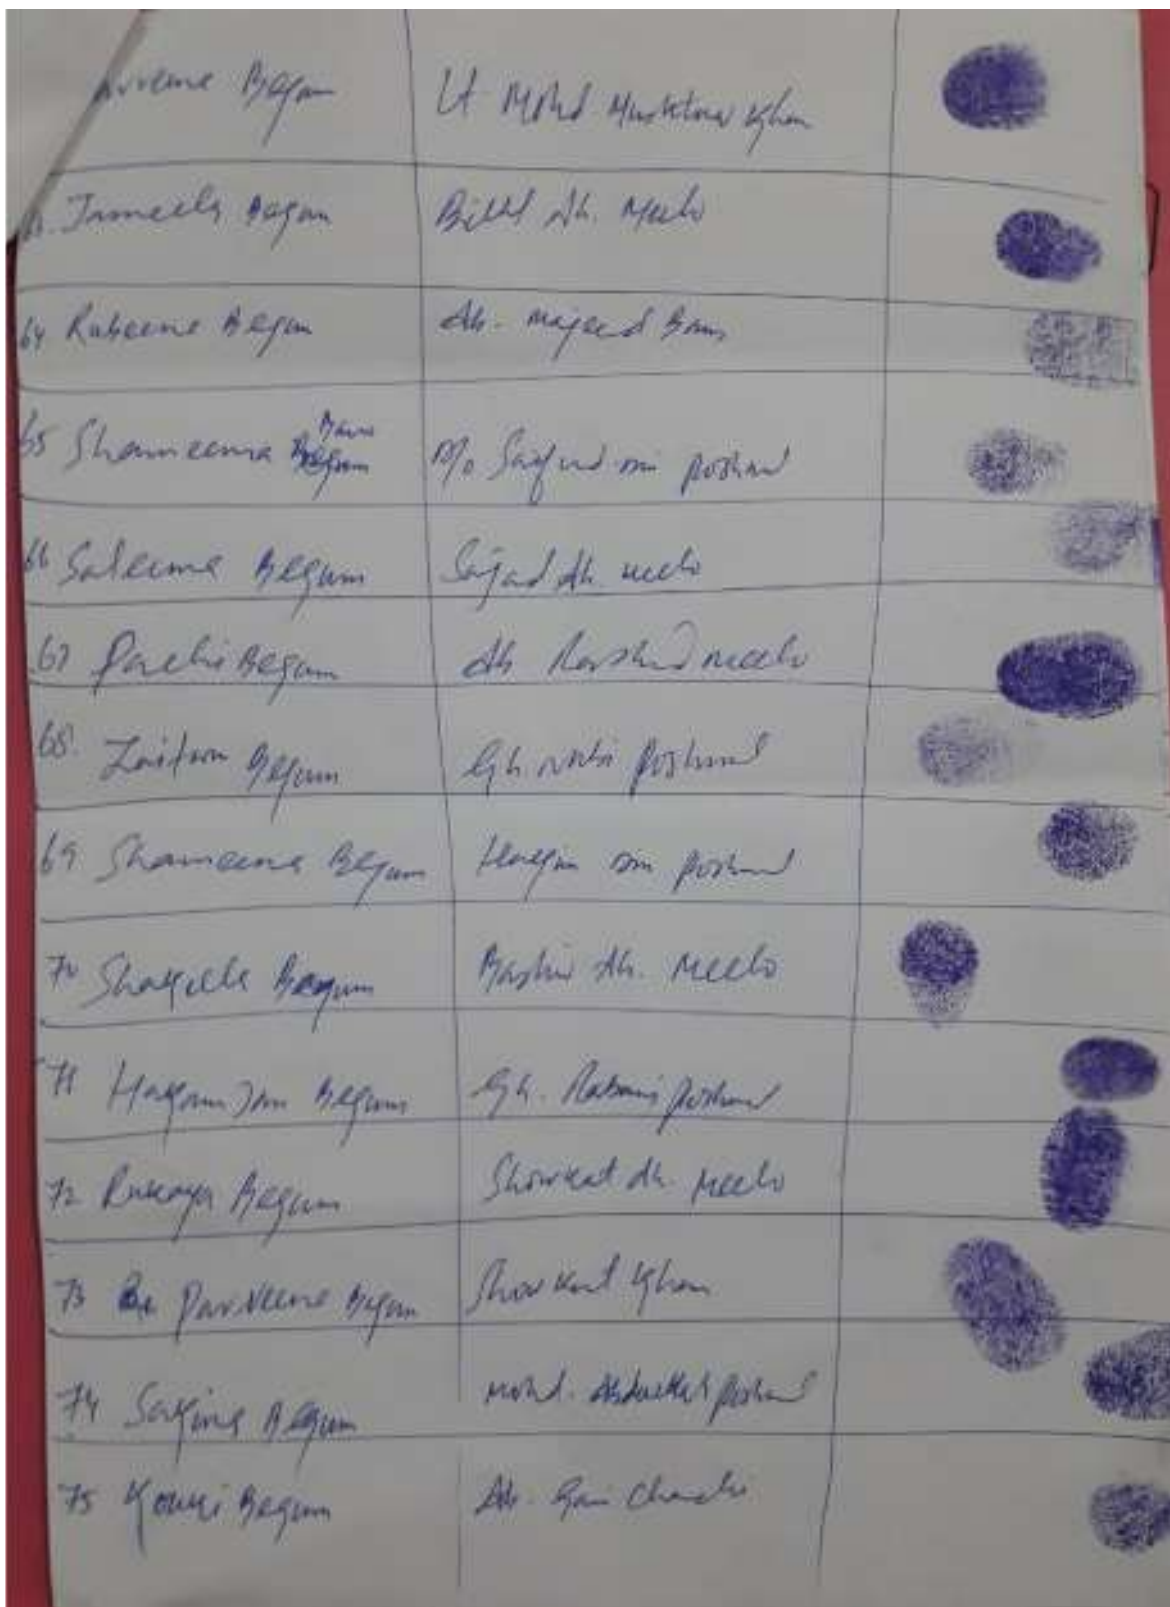 Begam Lt Mohd Mushtaw Khan
Jameela Begam Billl Ah. Meelo
64 Rubeena Begam Ah. Majeed
Banu
65 Shameema Begum D/o poshwal
66 Saleema Begum Sajad Ah. Meelo
67 Begam Ah Rashid Meelo
68. Zaitun Begum Gh. Nabi poshwal
69 Shameema Begum poshwal
70 Shaqeela Begum Bashir Ah. Meelo
71 Begum Gh. Rabani poshwal
72 Rukaya Begum Showkat Ah. Meelo
73 Parveena Begum Showkat Khan
74 Saqina Begum Mohd. Abdullah poshwal
75 Begum Ah. Gani